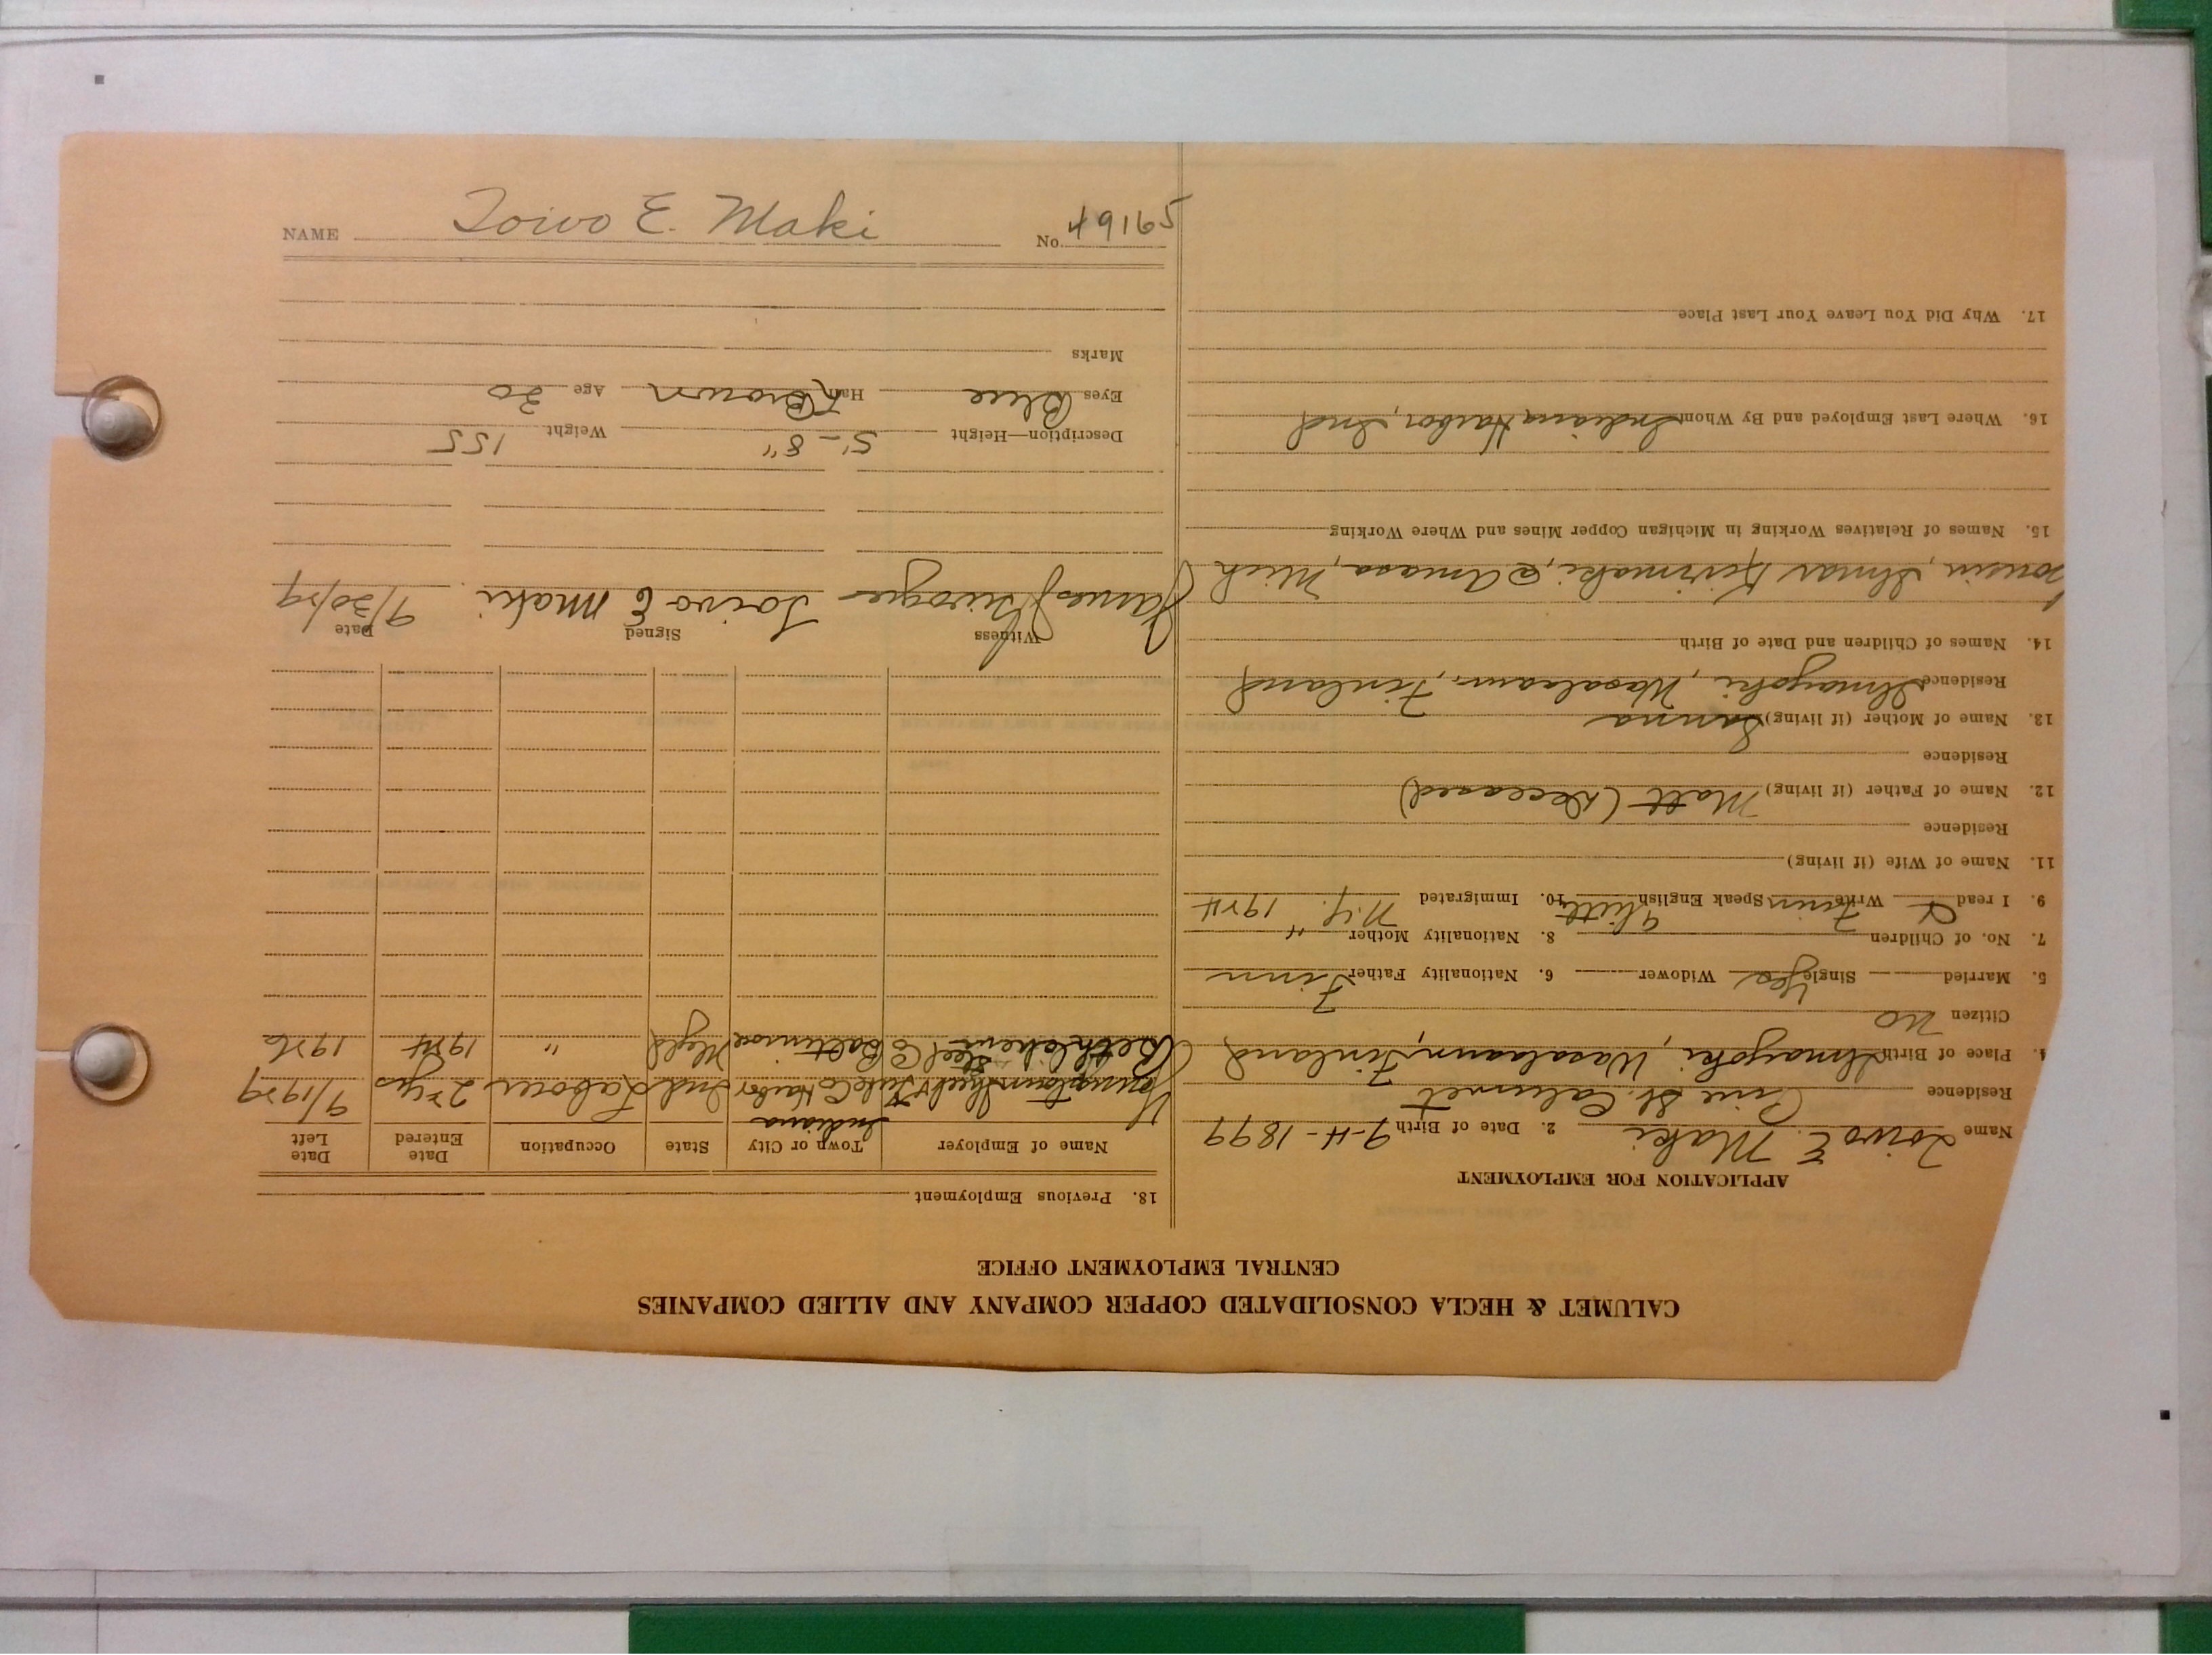 NAME Toivo E. Maki No. 49165
CALUMET & HECLA CONSOLIDATED COPPER COMPANY AND ALLIED COMPANIES
CENTRAL EMPLOYMENT OFFICE
APPLICATION FOR EMPLOYMENT
Name Toivo E. Maki 2. Date of Birth 9-4-1899
Residence Pine St. Calumet
4. Place of Birth Ilmajoki, Wasalaani, Finland
Citizen no
5. Married Single Yes Widower 6. Nationality Father Finn
7. No. of Children 8. Nationality Mother "
9. I read & Write Finn Speak English little 10. Immigrated N.Y. 1924
11. Name of Wife (if living)
Residence
12. Name of Father (if living) Matt (Deceased)
Residence
13. Name of Mother (if living) Sanna
Residence Ilmajoki, Wasalaani, Finland
14. Names of Children and Date of Birth
Cousin, Ilmar Kivimaki, @ Amasa, Mich
15. Names of Relatives Working in Michigan Copper Mines and Where Working
16. Where Last Employed and By Whom Indiana Harbor, Ind
17. Why Did You Leave Your Last Place
18. Previous Employment
Name of Employer Town or City State Occupation Date Entered Date Left
Youngstown Sheet & Tube Co Indiana Harbor Ind Laborer 2 yrs 9/1929
Bethlehem Steel Co Baltimore Myld " 1924 1926
Witness Signed Date
James Toivo E Maki 9/30/29
Description—Height 5'-8" Weight 155
Eyes Blue Hair Brown Age 30
Marks